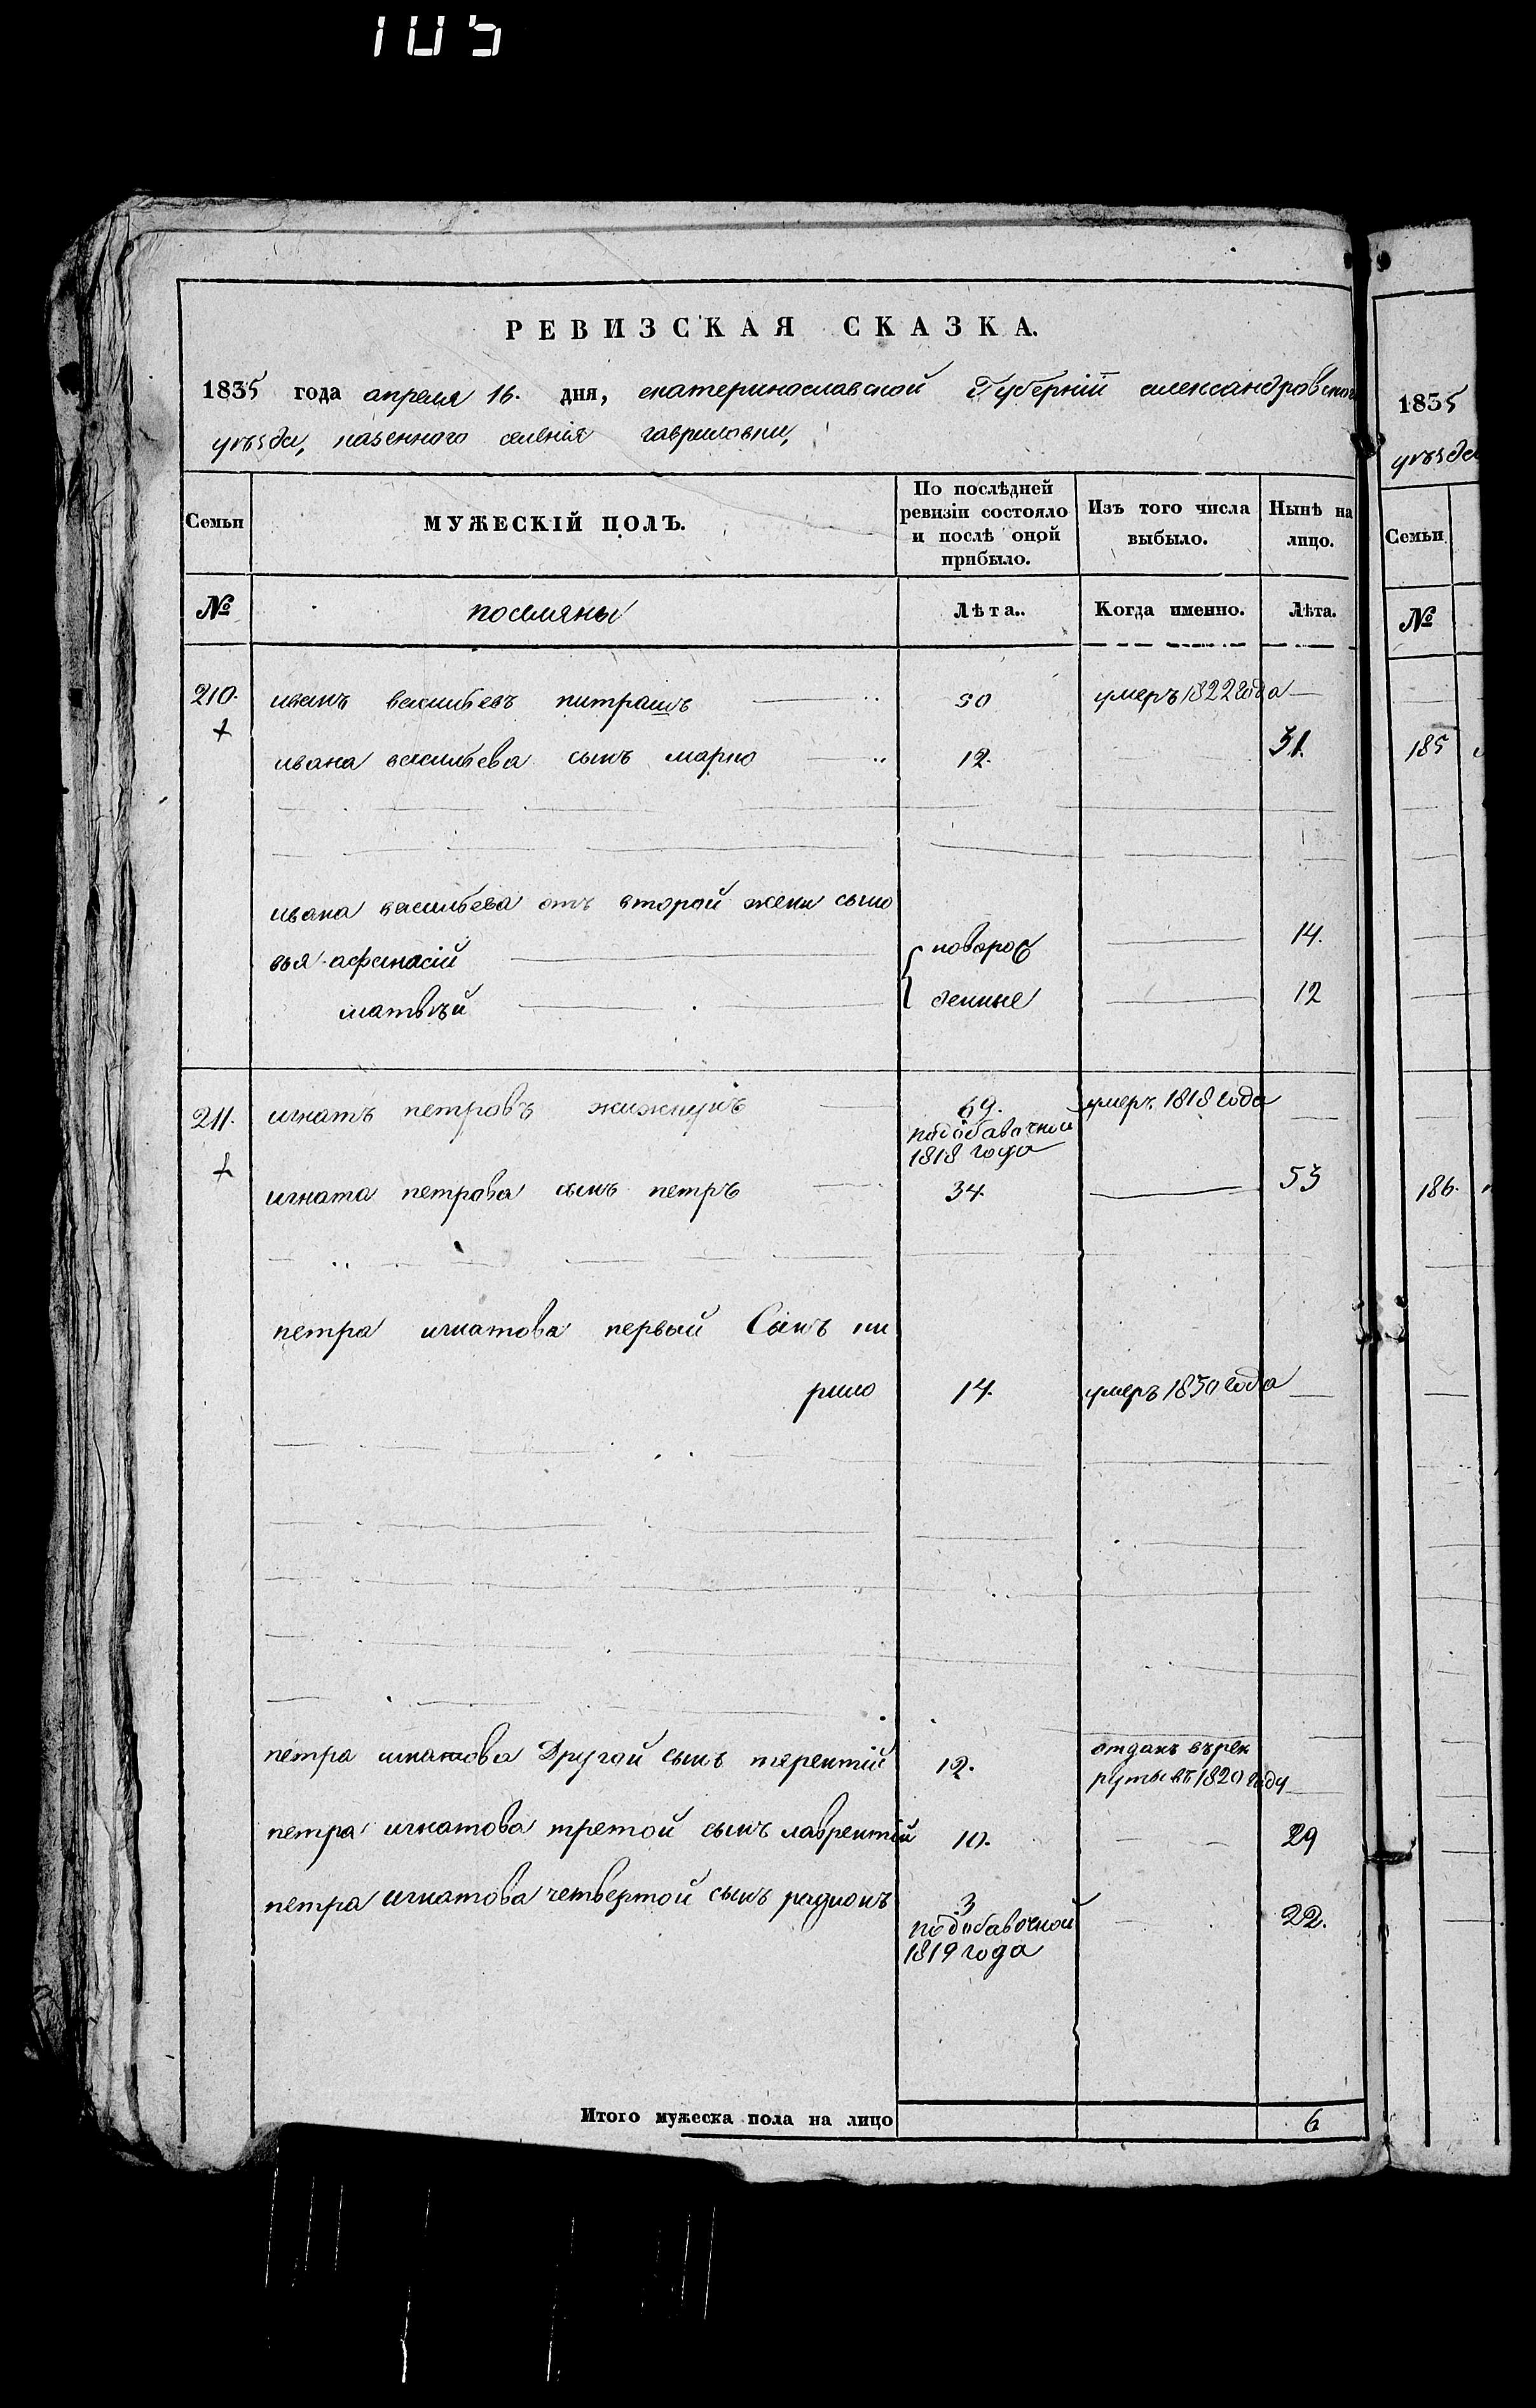 105
РЕВИЗСКАЯ СКАЗКА.
1835 года апреля 16. дня, екатеринославской Губерніи александровского
уѣзда, казенного селенія гавриловки,
Семьи
МУЖЕСКІЙ ПОЛЪ.
По послѣдней ревизіи состояло и послѣ оной прибыло.
Изъ того числа выбыло.
Нынѣ на лицо.
№ поселяны Лѣта. Когда именно. Лѣта.
210. иванъ васильевъ питрашъ 50 умеръ 1822 года
ивана васильева сынъ марко 12. 31.
ивана васильева отъ второй жени сыно
вья афанасій новорож 14.
матвѣй денные 12
211. игнатъ петровъ 69. умеръ 1818 года
подобавочной
1818 года
игната петрова сынъ петръ 34. 53
петра игнатова первый Сынъ ки
рило 14. умеръ 1830 года
петра игнатова Другой сынъ терентій 12. отданъ врек
руты въ 1820 году
петра игнатова третой сынъ лаврентій 10. 29
петра игнатова четвертой сынъ радионъ 3 22.
подобавочной
1819 года
Итого мужеска пола на лицо 6
1835
уѣзда
Семьи
№
185
186.